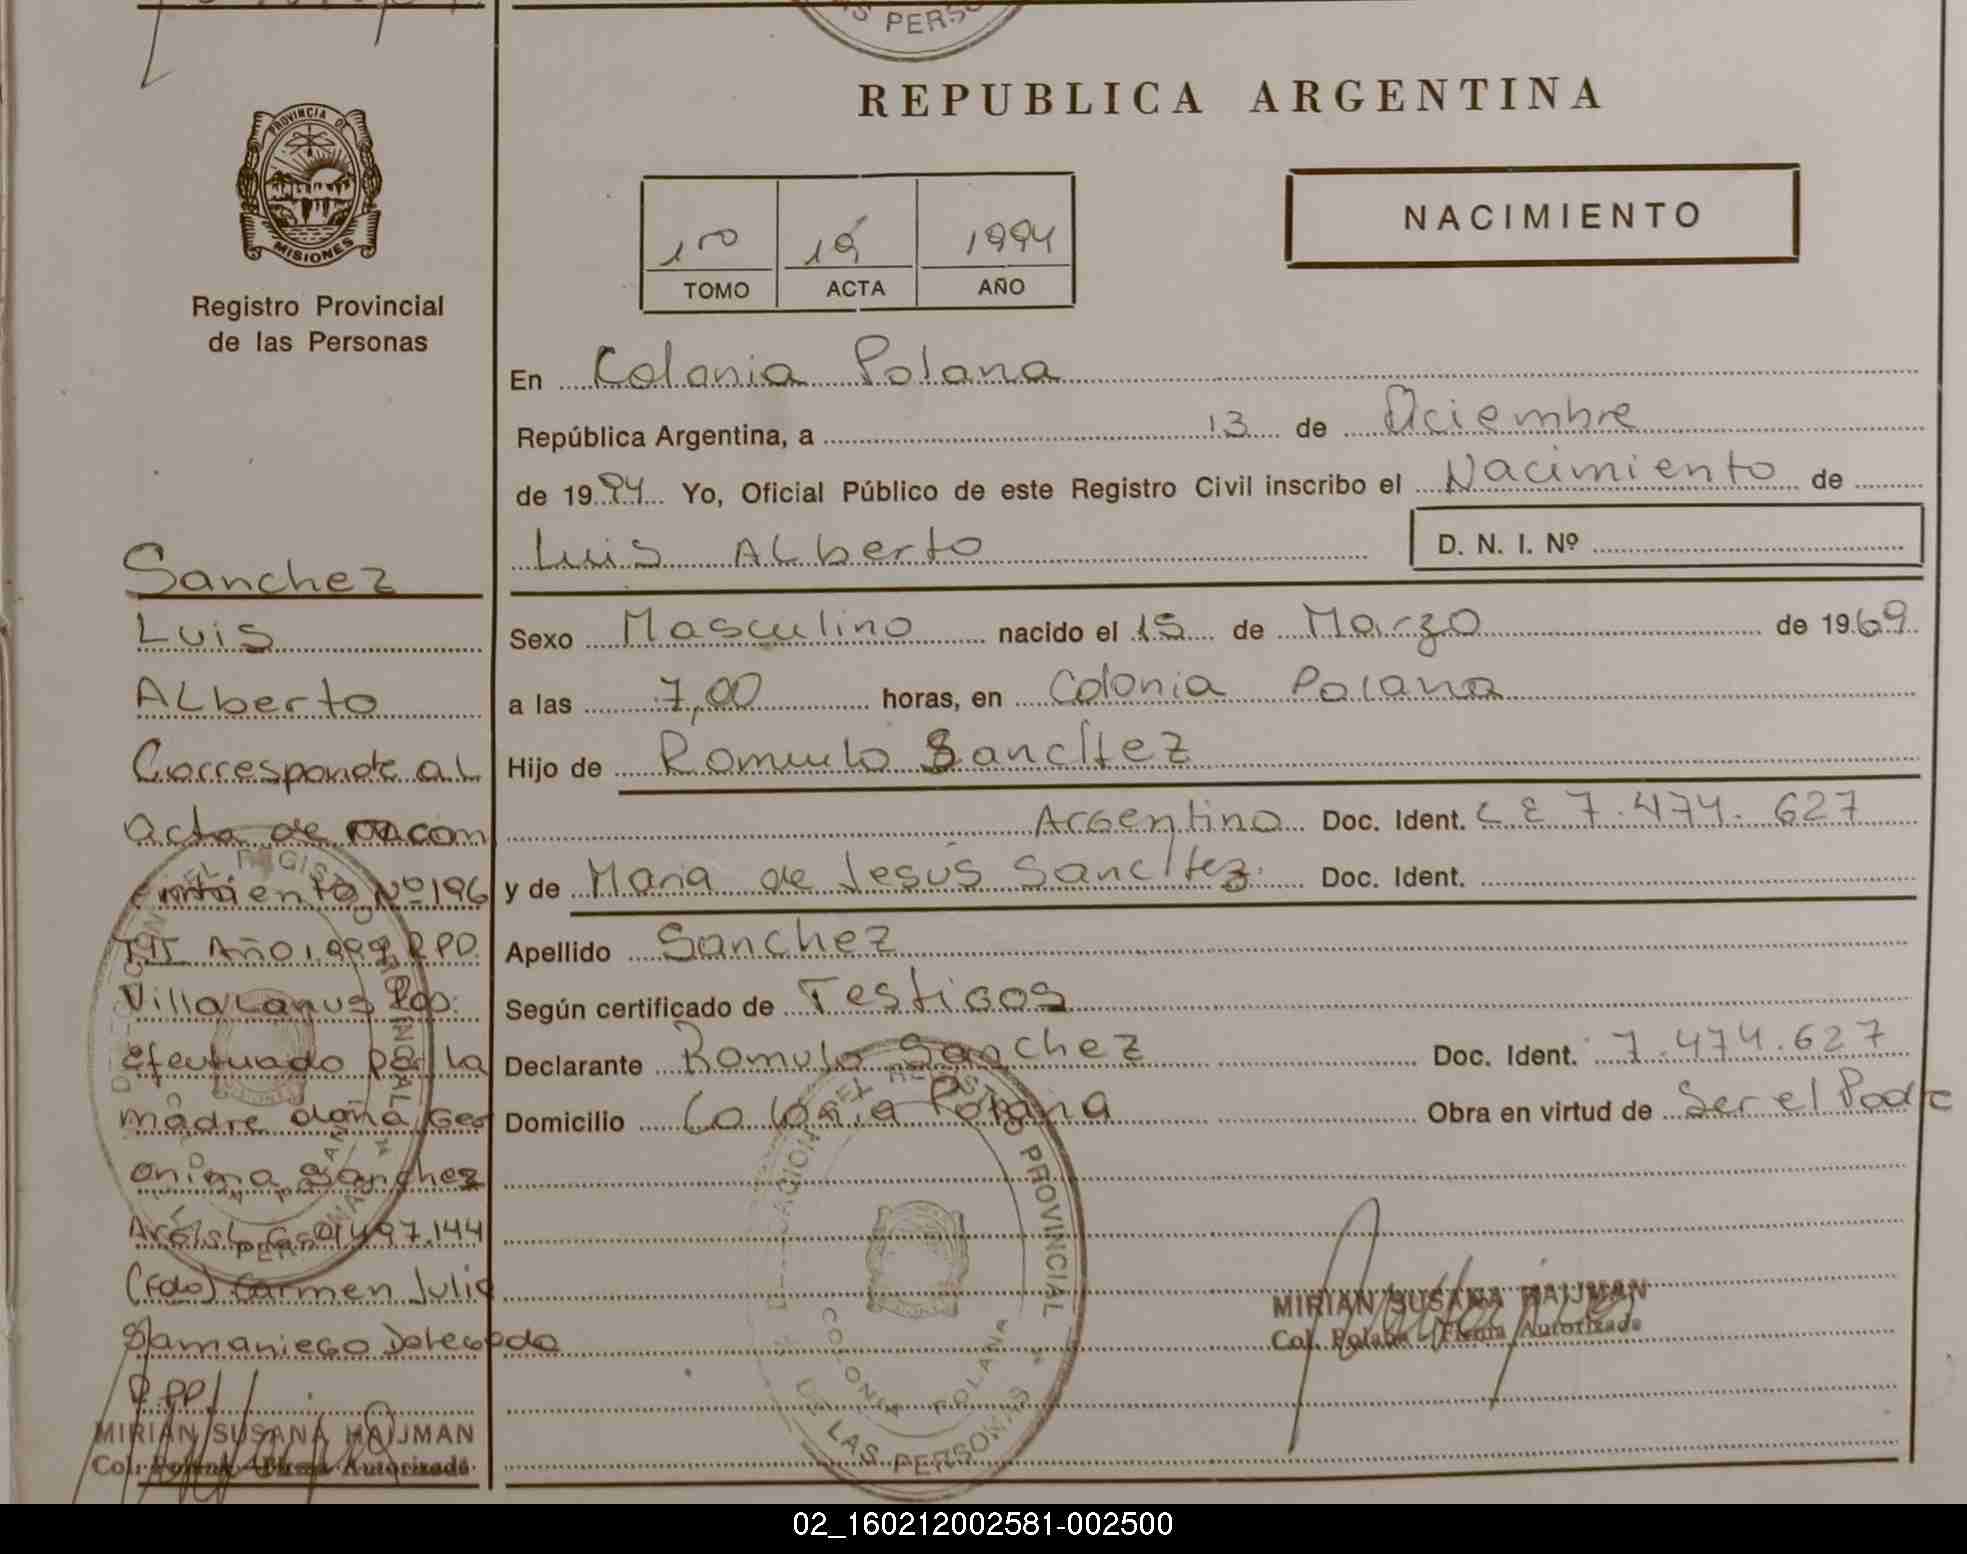 PERSO
PROVINCIA DE
MISIONES
Registro Provincial
de las Personas
REPUBLICA ARGENTINA
NACIMIENTO
1º 1994
TOMO ACTA AÑO
En Colonia Polana
República Argentina, a 13 de Diciembre
de 1994 Yo, Oficial Público de este Registro Civil inscribo el Nacimiento de
Luis ALberto D. N. I. Nº
Sexo Masculino nacido el 15 de Marzo de 1969
a las 7,00 horas, en Colonia Polana
Hijo de Romulo Sanchez
Argentino Doc. Ident. C E 7.474.627
y de Maria de Jesús Sanchez Doc. Ident.
Apellido Sanchez
Según certificado de Testigos
Declarante Romulo Sanchez Doc. Ident. 7.474.627
Domicilio Colonia Polana Obra en virtud de Ser el Padre
Sanchez
Luis
ALberto
Corresponde al
acta de
Nº 196
Año 1.999 RPP
Villa Lanus Pos.
efectuado por la
madre doña Ger
onima Sanchez
497.144
(Fdo) Carmen Julia
Samaniego Delegada
R.PP.
MIRIAN SUSANA HAIJMAN
Col. Polana Firma Autorizada
DELEGACION DEL REGISTRO PROVINCIAL
DE LAS PERSONAS
COLONIA POLANA
MIRIAN SUSANA HAIJMAN
Col. Polana Firma Autorizada
02_160212002581-002500